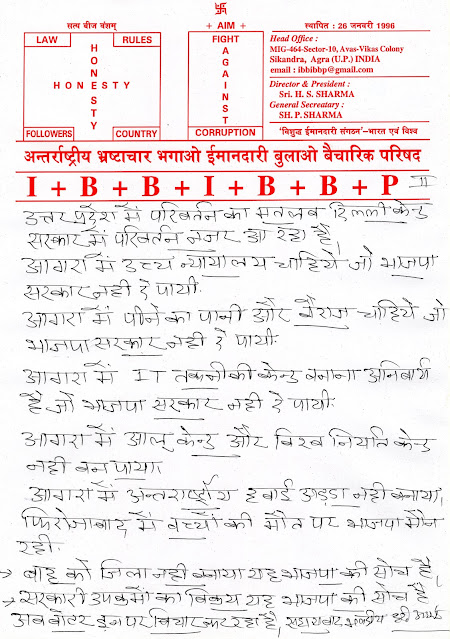 सत्य बीज वंशम्
LAW RULES
HONESTY
HONESTY
FOLLOWERS COUNTRY
+ AIM +
FIGHT
AGAINST
CORRUPTION
स्थापित : 26 जनवरी 1996
Head Office :
MIG-464-Sector-10, Avas-Vikas Colony
Sikandra, Agra (U.P.) INDIA
email : ibbibbp@gmail.com
Director & President :
Sri. H. S. SHARMA
General Secreatary :
SH. P. SHARMA
'विशुद्ध ईमानदारी संगठन'-भारत एवं विश्व
अन्तर्राष्ट्रीय भ्रष्टाचार भगाओ ईमानदारी बुलाओ बैचारिक परिषद
I + B + B + I + B + B + P II
उत्तर प्रदेश में परिवर्तन का मतलब दिल्ली केन्द्र
सरकार में परिवर्तन नजर आ रहा है,
आगरा में उच्च न्यायालय चाहिये जो भाजपा
सरकार नही दे पायी.
आगरा में पीने का पानी और बैराज चाहिये जो
भाजपा सरकार नही दे पायी.
आगरा में IT तकनीकी केन्द्र बनाना अनिवार्य
है जो भाजपा सरकार नही दे पायी.
आगरा में आलू केन्द्र और विश्व निर्यात केन्द्र
नही बन पाया
आगरा में अन्तर्राष्ट्रीय हवाई अड्डा नही बनाया,
फिरोजाबाद में बच्चों की मौत पर भाजपा मौन
रही.
→ बाह को जिला नही बनाया यह भाजपा की सोच है,
→ सरकारी उपक्रमों का विक्रय यह भाजपा की सोच है
अब वोटर इन पर विचार कर रहा है,